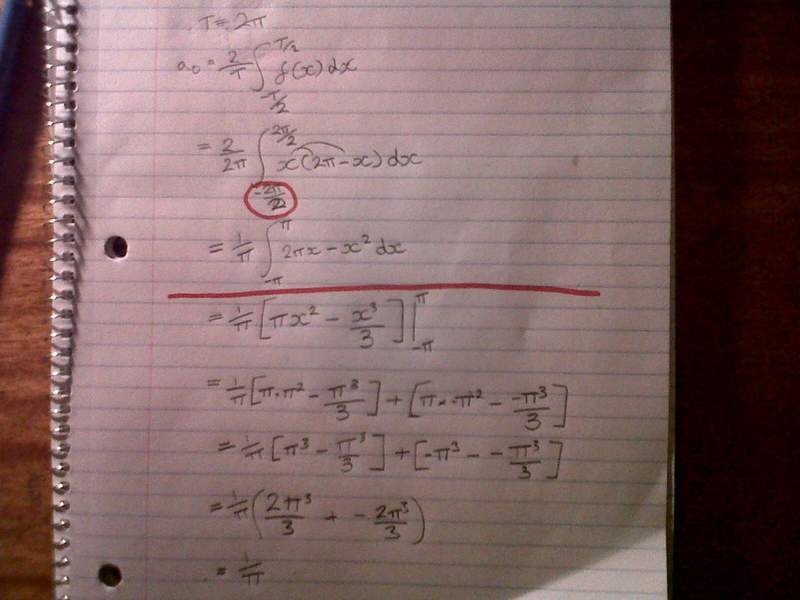 T = 2π
a₀ = 2/T ∫_{-T/2}^{T/2} f(x) dx
= 2/2π ∫_{-2π/2}^{2π/2} x(2π-x) dx
= 1/π ∫_{-π}^{π} 2πx - x² dx
= 1/π [πx² - x³/3] |_{-π}^{π}
= 1/π [π·π² - π³/3] + [π·-π² - -π³/3]
= 1/π [π³ - π³/3] + [-π³ - -π³/3]
= 1/π (2π³/3 + -2π³/3)
= 1/π